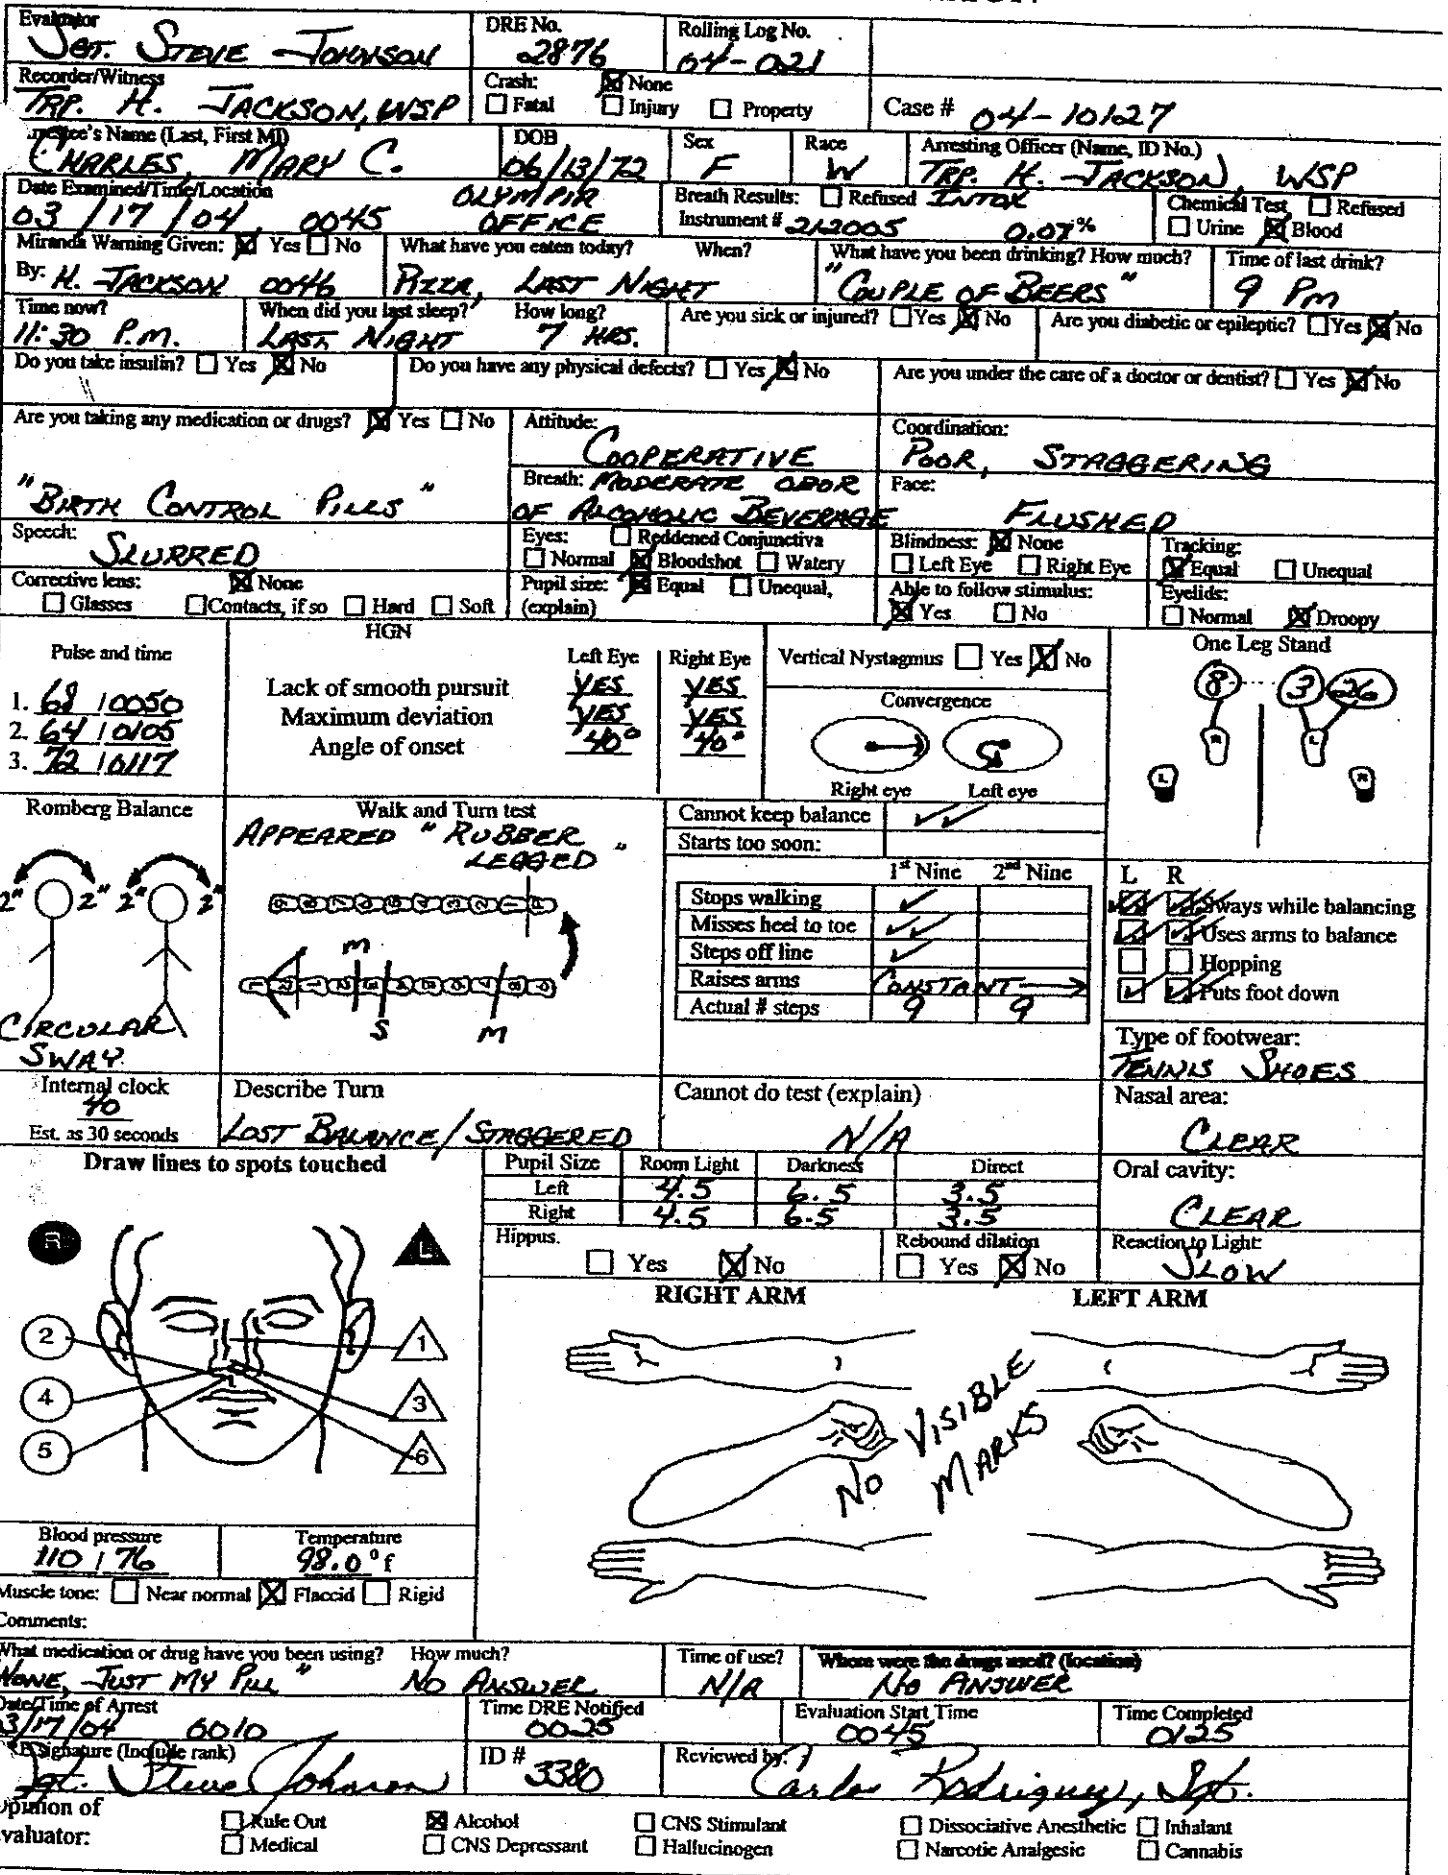 Evaluator
Sgt. Steve Johnson
DRE No.
2876
Rolling Log No.
04-021
Recorder/Witness
TRP. H. Jackson, WSP
Crash: ☒ None
☐ Fatal ☐ Injury ☐ Property
Case # 04-10127
Arrestee's Name (Last, First MI)
Charles, Mary C.
DOB
06/13/72
Sex
F
Race
W
Arresting Officer (Name, ID No.)
TRP. H. Jackson, WSP
Date Examined/Time/Location
03/17/04, 0045 Olympia Office
Breath Results: ☐ Refused Intox
Instrument # 212005 0.07%
Chemical Test ☐ Refused
☐ Urine ☒ Blood
Miranda Warning Given: ☒ Yes ☐ No
By: H. Jackson 0046
What have you eaten today? When?
Pizza, Last Night
What have you been drinking? How much?
"Couple of Beers"
Time of last drink?
9 PM
Time now?
11:30 P.M.
When did you last sleep? How long?
Last Night 7 Hrs.
Are you sick or injured? ☐ Yes ☒ No
Are you diabetic or epileptic? ☐ Yes ☒ No
Do you take insulin? ☐ Yes ☒ No
Do you have any physical defects? ☐ Yes ☒ No
Are you under the care of a doctor or dentist? ☐ Yes ☒ No
Are you taking any medication or drugs? ☒ Yes ☐ No
"Birth Control Pills"
Attitude:
Cooperative
Coordination:
Poor, Staggering
Breath: Moderate Odor
of Alcoholic Beverage
Face:
Flushed
Speech:
Slurred
Eyes: ☐ Reddened Conjunctiva
☐ Normal ☒ Bloodshot ☐ Watery
Blindness: ☒ None
☐ Left Eye ☐ Right Eye
Tracking:
☒ Equal ☐ Unequal
Corrective lens: ☒ None
☐ Glasses ☐ Contacts, if so ☐ Hard ☐ Soft
Pupil size: ☒ Equal ☐ Unequal,
(explain)
Able to follow stimulus:
☒ Yes ☐ No
Eyelids:
☐ Normal ☒ Droopy
Pulse and time
1. 68 / 0050
2. 64 / 0105
3. 72 / 0117
HGN
Left Eye Right Eye
Lack of smooth pursuit Yes Yes
Maximum deviation Yes Yes
Angle of onset 40° 40°
Vertical Nystagmus ☐ Yes ☒ No
Convergence
Right eye Left eye
One Leg Stand
8 3 26
R L
L R
Romberg Balance
2" 2" 2" 2"
Circular
Sway
Walk and Turn test
Appeared "Rubber
Legged"
M
S M
Cannot keep balance ✓✓
Starts too soon:
1st Nine 2nd Nine
Stops walking ✓
Misses heel to toe ✓✓
Steps off line ✓
Raises arms Constant →
Actual # steps 9 9
L R
Sways while balancing
Uses arms to balance
Hopping
Puts foot down
Type of footwear:
Tennis Shoes
Internal clock
40
Est. as 30 seconds
Describe Turn
Lost Balance/Staggered
Cannot do test (explain)
N/A
Nasal area:
Clear
Draw lines to spots touched
Pupil Size Room Light Darkness Direct
Left 4.5 6.5 3.5
Right 4.5 6.5 3.5
Oral cavity:
Clear
Hippus.
☐ Yes ☒ No
Rebound dilation
☐ Yes ☒ No
Reaction to Light:
Slow
R L
2 1
4 3
5 6
RIGHT ARM LEFT ARM
No Visible Marks
Blood pressure
110 / 76
Temperature
98.0 °f
Muscle tone: ☐ Near normal ☒ Flaccid ☐ Rigid
Comments:
What medication or drug have you been using? How much?
None, Just My Pill" No Answer
Time of use?
N/A
Where were the drugs used? (location)
No Answer
Date/Time of Arrest
3/17/04 0010
Time DRE Notified
0025
Evaluation Start Time
0045
Time Completed
0125
Signature (Include rank)
Sgt. Steve Johnson
ID #
3380
Reviewed by:
Carlos Rodriguez, Sgt.
Opinion of
Evaluator:
☐ Rule Out ☒ Alcohol ☐ CNS Stimulant ☐ Dissociative Anesthetic ☐ Inhalant
☐ Medical ☐ CNS Depressant ☐ Hallucinogen ☐ Narcotic Analgesic ☐ Cannabis